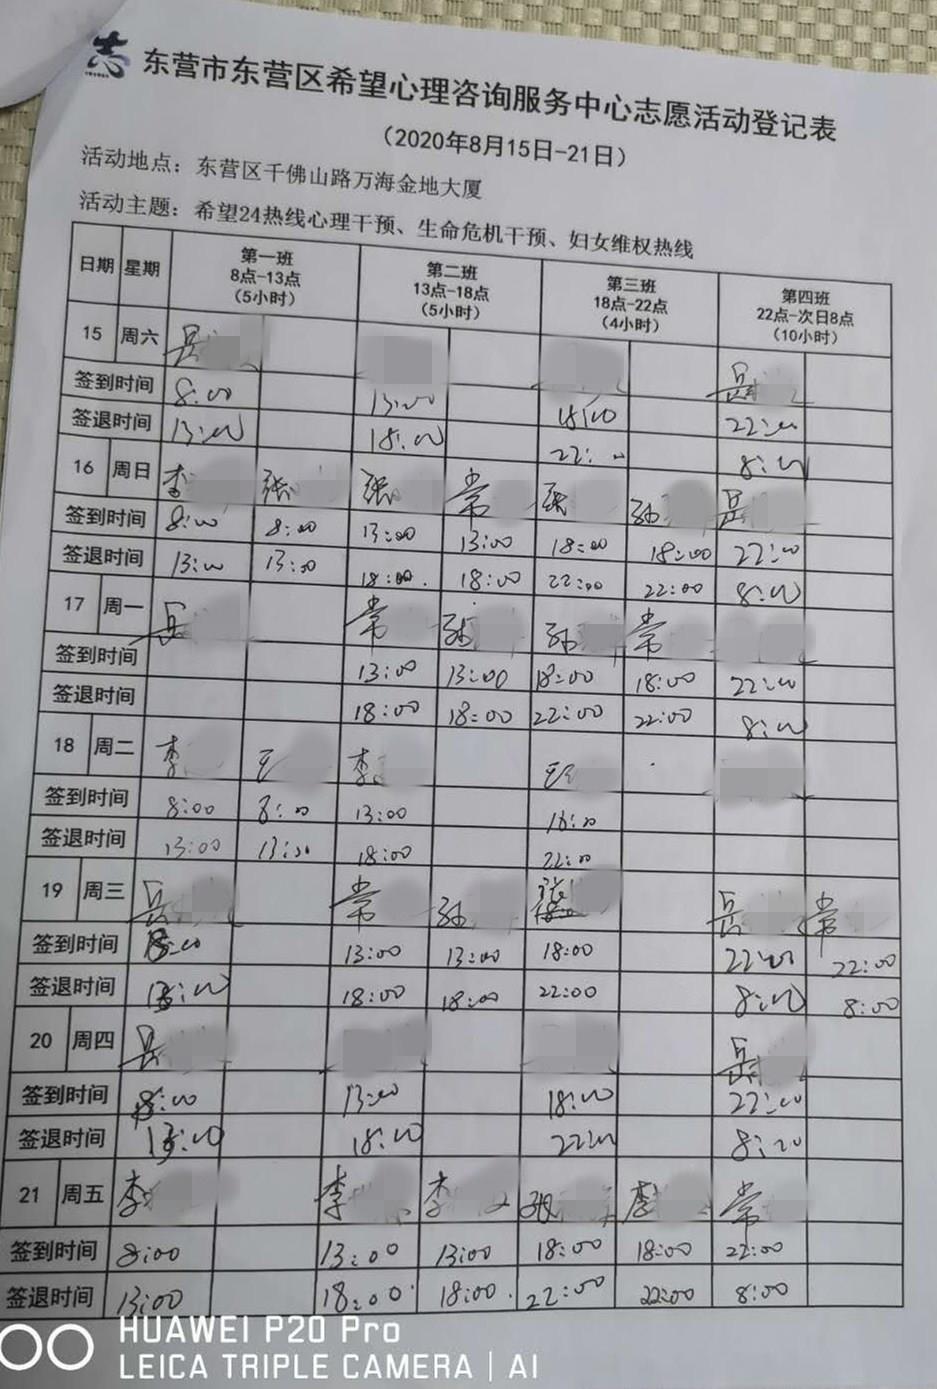 东营市东营区希望心理咨询服务中心志愿活动登记表
（2020年8月15日-21日）
活动地点：东营区千佛山路万海金地大厦
活动主题：希望24热线心理干预、生命危机干预、妇女维权热线
日期 星期 第一班 8点-13点 （5小时） 第二班 13点-18点 （5小时） 第三班 18点-22点 （4小时） 第四班 22点-次日8点 （10小时）
15 周六 岳 岳
签到时间 8:00 13:00 18:00 22:00
签退时间 13:00 18:00 22:00 8:00
16 周日 李 张 张 常 张 孙 岳
签到时间 8:00 8:00 13:00 13:00 18:00 18:00 22:00
签退时间 13:00 13:00 18:00 18:00 22:00 22:00 8:00
17 周一 岳 常 孙 孙 常
签到时间 13:00 13:00 18:00 18:00 22:00
签退时间 18:00 18:00 22:00 22:00 8:00
18 周二 李 王 李 王
签到时间 8:00 8:00 13:00 18:00
签退时间 13:00 13:00 18:00 22:00
19 周三 岳 常 孙 岳 常
签到时间 8:00 13:00 13:00 18:00 22:00 22:00
签退时间 13:00 18:00 18:00 22:00 8:00 8:00
20 周四 岳 岳
签到时间 8:00 13:00 18:00 22:00
签退时间 13:00 18:00 22:00 8:00
21 周五 李 李 李 张 李 常
签到时间 8:00 13:00 13:00 18:00 18:00 22:00
签退时间 13:00 18:00 18:00 22:00 22:00 8:00
HUAWEI P20 Pro
LEICA TRIPLE CAMERA | AI